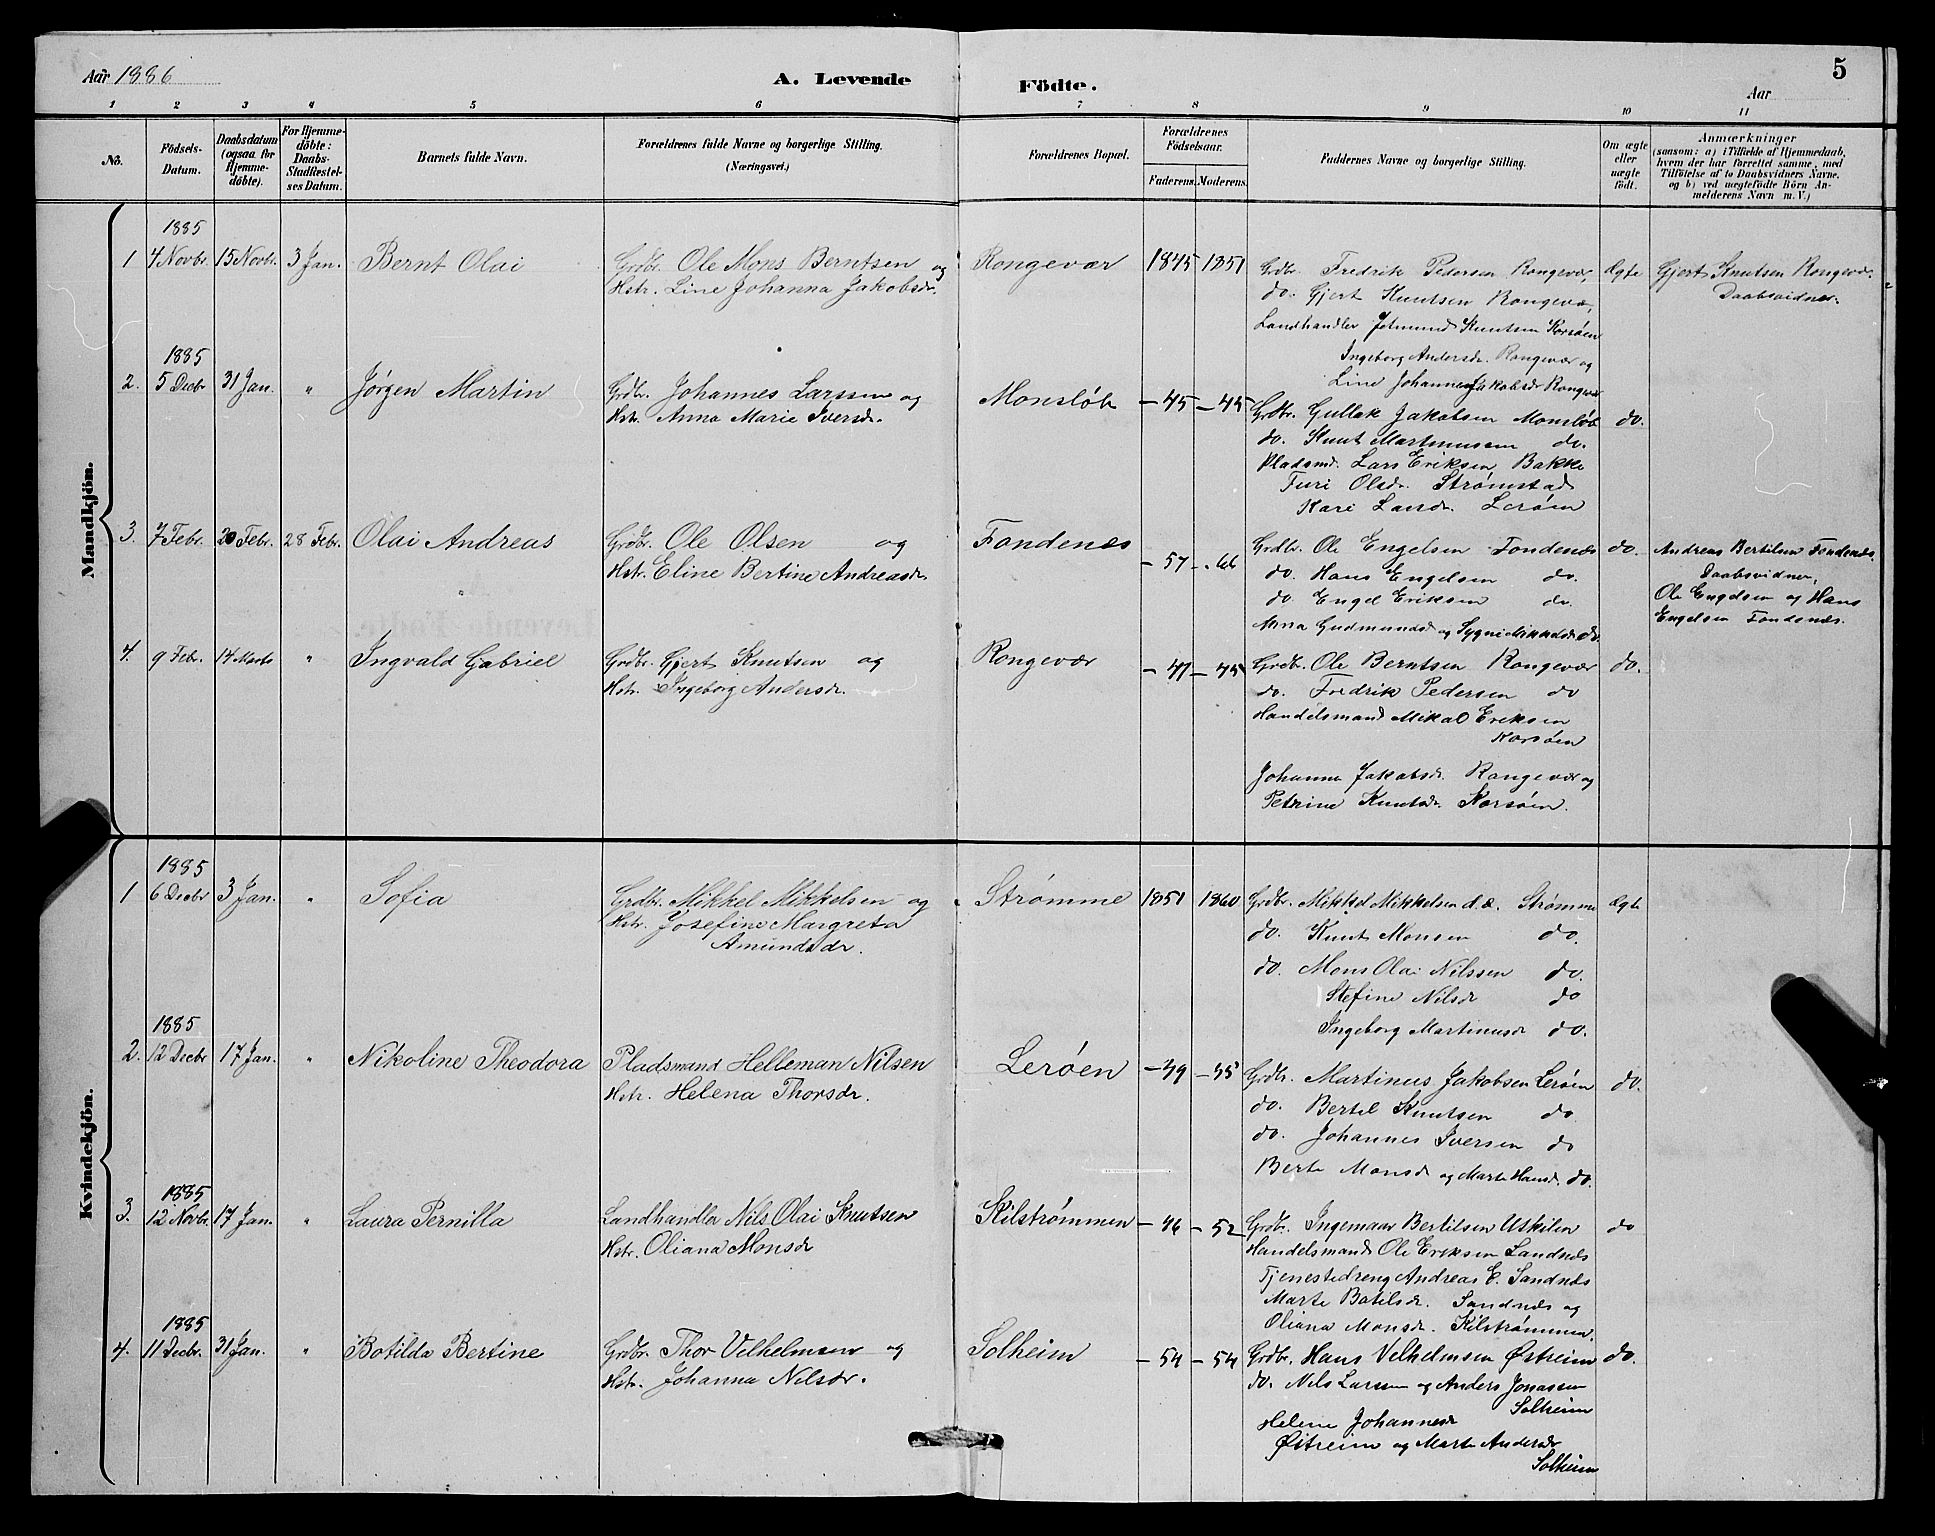 Aar 1886
A. Levende
Födte.
5
Aar
1 2 3 4 5 6 7 8 9 10 11
No.
Födsels-
Datum.
Daabsdatum
(ogsaa for
Hjemme-
döbte).
For Hjemme-
döbte:
Daabs-
Stadfæstel-
ses Datum.
Barnets fulde Navn.
Forældrenes fulde Navne og borgerlige Stilling.
(Næringsvei.)
Forældrenes Bopæl.
Forældrenes
Födselsaar.
Faderens. Moderens.
Faddernes Navne og borgerlige Stilling.
Om ægte
eller
uægte
födt.
Anmærkninger
(saasom: a) i Tilfælde af Hjemmedaab,
hvem der har forrettet samme, med
Tilföielse af to Daabsvidners Navne.
og b) ved uægtefödte Börn An-
melderens Navn m. V.)
Mandkjön.
1885
1 4 Novbr. 15 Novbr. 3 Jan. Bernt Olai
Grdbr. Ole Mons Berntsen og
Hstr. Line Johanna Jakobsdr.
Rongevær 1845 1851
Grdbr. Fredrik Pedersen Rongevær,
do. Gjert Knutsen Rongevær,
Landhandler Jetmund Knutsen Korsøen
Ingeborg Andersdr. Rongevær og
Line Johanne Jakobsdr Rongevær
Ægte
Gjert Knutsen Rongevær.
Daabsvidner.
1885
2. 5 Decbr 31 Jan. " Jørgen Martin
Grdbr. Johannes Larssen og
Hstr. Anna Marie Iversdr.
Monsløb - 45 - 45
Grdbr. Gullak Jakobsen Monsløb
do. Knut Martinussen do.
Pladsmd. Lars Eriksen Bakke
Turi Olsdr. Strømstad
Kari Larsdr. Lerøen
do.
3. 7 Febr. 20 Febr. 28 Febr. Olai Andreas
Grdbr. Ole Olsen og
Hstr. Eline Bertine Andreasdr
Fondenæs - 57 - 66
Grdbr. Ole Engelsen Fondenæs
do. Hans Engelsen do.
do. Engel Eriksen do.
Anna Gudmundsd og Sygni Mikkelsdr do.
do.
Andreas Bertilsen Fondenæs.
Daabsvidner,
Ole Engelsen og Hans
Engelsen Fondenæs.
4. 9 Febr. 14 Marts " Ingvald Gabriel
Grdbr. Gjert Knutsen og
Hstr. Ingeborg Andersdr.
Rongevær - 41 - 45
Grdbr. Ole Berntsen Rongevær
do. Fredrik Pedersen do
Handelsmand Mikal Eriksen
Korsøen
Johanna Jakobsdr. Rongevær og
Petrine Knutsdr. Korsøen.
do.
Kvindekjön.
1885
1 6 Decbr 3 Jan. " Sofia
Grdbr. Mikkel Mikkelsen og
Hstr. Josefine Margreta
Amundsdr.
Strømme 1851 1860
Grdbr. Mikkel Mikkelsen d.æ. Strømme
do. Knut Monsen do.
do. Mons Olai Nilssen do.
Stefine Nilsdr do
Ingeborg Martinusdr do.
Ægte
1885
2. 12 Decbr 17 Jan. " Nikoline Theodora
Pladsmand Helleman Nilsen
Hstr. Helena Thorsdr.
Lerøen - 39 - 35
Grdbr. Martinus Jakobsen Lerøen
do. Bertel Knutsen do
do. Johannes Iversen do
Berte Monsdr og Marte Hansd. do.
do.
1885
3. 12 Novbr. 17 Jan. " Laura Pernilla
Landhandler Nils Olai Knutsen
Hstr. Oliana Monsdr
Kilstrømmen - 46 - 52
Grdbr. Ingemaar Bertilsen Utkilen
Handelsmand Ole Eriksen Sandnæs
Tjenestedreng Andreas E. Sandnæs
Marte Botilsdr. Sandnæs og
Oliana Monsdr. Kilstrømmen.
do
1885
4. 11 Decbr. 31 Jan. " Botilda Bertine
Grdbr. Thor Velhelmsen og
Hstr. Johanna Nilsdr.
Solheim - 54 - 54
Grdbr. Hans Velhelmsen Østreim
do. Nils Larssen og Anders Jonassen
Solheim
Helene Johannesdr
Østreim og Marte Andersdr
Solheim
do.